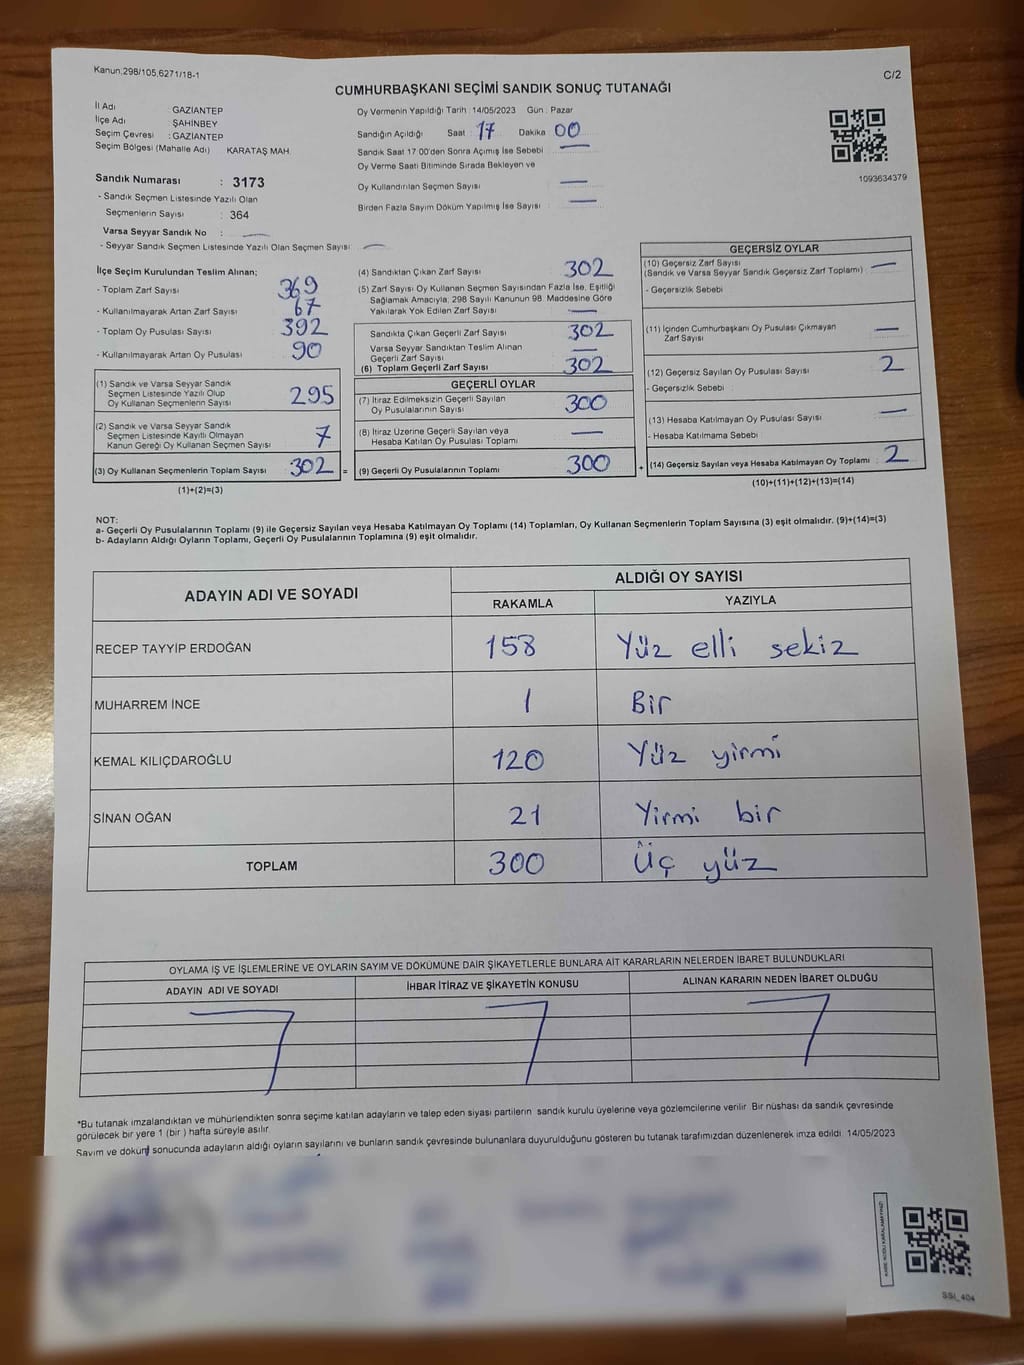 Kanun;298/105,6271/18-1
C/2
CUMHURBAŞKANI SEÇİMİ SANDIK SONUÇ TUTANAĞI
İl Adı GAZİANTEP
İlçe Adı : ŞAHİNBEY
Seçim Çevresi : GAZİANTEP
Seçim Bölgesi (Mahalle Adı) KARATAŞ MAH.
Sandık Numarası : 3173
- Sandık Seçmen Listesinde Yazılı Olan
Seçmenlerin Sayısı : 364
Varsa Seyyar Sandık No : —
- Seyyar Sandık Seçmen Listesinde Yazılı Olan Seçmen Sayısı : —
Oy Vermenin Yapıldığı Tarih : 14/05/2023 Gün : Pazar
Sandığın Açıldığı Saat : 17 Dakika 00
Sandık Saat 17:00'den Sonra Açılmış İse Sebebi —
Oy Verme Saati Bitiminde Sırada Bekleyen ve
Oy Kullandırılan Seçmen Sayısı —
Birden Fazla Sayım Döküm Yapılmış İse Sayısı —
1093634379
İlçe Seçim Kurulundan Teslim Alınan;
- Toplam Zarf Sayısı 369
- Kullanılmayarak Artan Zarf Sayısı 67
- Toplam Oy Pusulası Sayısı 392
- Kullanılmayarak Artan Oy Pusulası 90
(1) Sandık ve Varsa Seyyar Sandık
Seçmen Listesinde Yazılı Olup
Oy Kullanan Seçmenlerin Sayısı 295
(2) Sandık ve Varsa Seyyar Sandık
Seçmen Listesinde Kayıtlı Olmayan
Kanun Gereği Oy Kullanan Seçmen Sayısı 7
(3) Oy Kullanan Seçmenlerin Toplam Sayısı 302 =
(1)+(2)=(3)
(4) Sandıktan Çıkan Zarf Sayısı 302
(5) Zarf Sayısı Oy Kullanan Seçmen Sayısından Fazla İse, Eşitliği
Sağlamak Amacıyla, 298 Sayılı Kanunun 98. Maddesine Göre
Yakılarak Yok Edilen Zarf Sayısı —
Sandıkta Çıkan Geçerli Zarf Sayısı 302
Varsa Seyyar Sandıktan Teslim Alınan
Geçerli Zarf Sayısı —
(6) Toplam Geçerli Zarf Sayısı 302
GEÇERLİ OYLAR
(7) İtiraz Edilmeksizin Geçerli Sayılan
Oy Pusulalarının Sayısı 300
(8) İtiraz Üzerine Geçerli Sayılan veya
Hesaba Katılan Oy Pusulası Toplamı —
(9) Geçerli Oy Pusulalarının Toplamı 300 +
GEÇERSİZ OYLAR
(10) Geçersiz Zarf Sayısı
(Sandık ve Varsa Seyyar Sandık Geçersiz Zarf Toplamı) —
- Geçersizlik Sebebi
(11) İçinden Cumhurbaşkanı Oy Pusulası Çıkmayan
Zarf Sayısı —
(12) Geçersiz Sayılan Oy Pusulası Sayısı 2
- Geçersizlik Sebebi :
(13) Hesaba Katılmayan Oy Pusulası Sayısı —
- Hesaba Katılmama Sebebi
(14) Geçersiz Sayılan veya Hesaba Katılmayan Oy Toplamı : 2
(10)+(11)+(12)+(13)=(14)
NOT:
a- Geçerli Oy Pusulalarının Toplamı (9) ile Geçersiz Sayılan veya Hesaba Katılmayan Oy Toplamı (14) Toplamları, Oy Kullanan Seçmenlerin Toplam Sayısına (3) eşit olmalıdır. (9)+(14)=(3)
b- Adayların Aldığı Oyların Toplamı, Geçerli Oy Pusulalarının Toplamına (9) eşit olmalıdır.
ADAYIN ADI VE SOYADI ALDIĞI OY SAYISI
RAKAMLA YAZIYLA
RECEP TAYYİP ERDOĞAN 158 Yüz elli sekiz
MUHARREM İNCE 1 Bir
KEMAL KILIÇDAROĞLU 120 Yüz yirmi
SİNAN OĞAN 21 Yirmi bir
TOPLAM 300 Üç yüz
OYLAMA İŞ VE İŞLEMLERİNE VE OYLARIN SAYIM VE DÖKÜMÜNE DAİR ŞİKAYETLERLE BUNLARA AİT KARARLARIN NELERDEN İBARET BULUNDUKLARI
ADAYIN ADI VE SOYADI İHBAR İTİRAZ VE ŞİKAYETİN KONUSU ALINAN KARARIN NEDEN İBARET OLDUĞU
*Bu tutanak imzalandıktan ve mühürlendikten sonra seçime katılan adayların ve talep eden siyasi partilerin sandık kurulu üyelerine veya gözlemcilerine verilir. Bir nüshası da sandık çevresinde
görülecek bir yere 1 (bir ) hafta süreyle asılır.
Sayım ve döküm sonucunda adayların aldığı oyların sayılarını ve bunların sandık çevresinde bulunanlara duyurulduğunu gösteren bu tutanak tarafımızdan düzenlenerek imza edildi. 14/05/2023
SSI_404